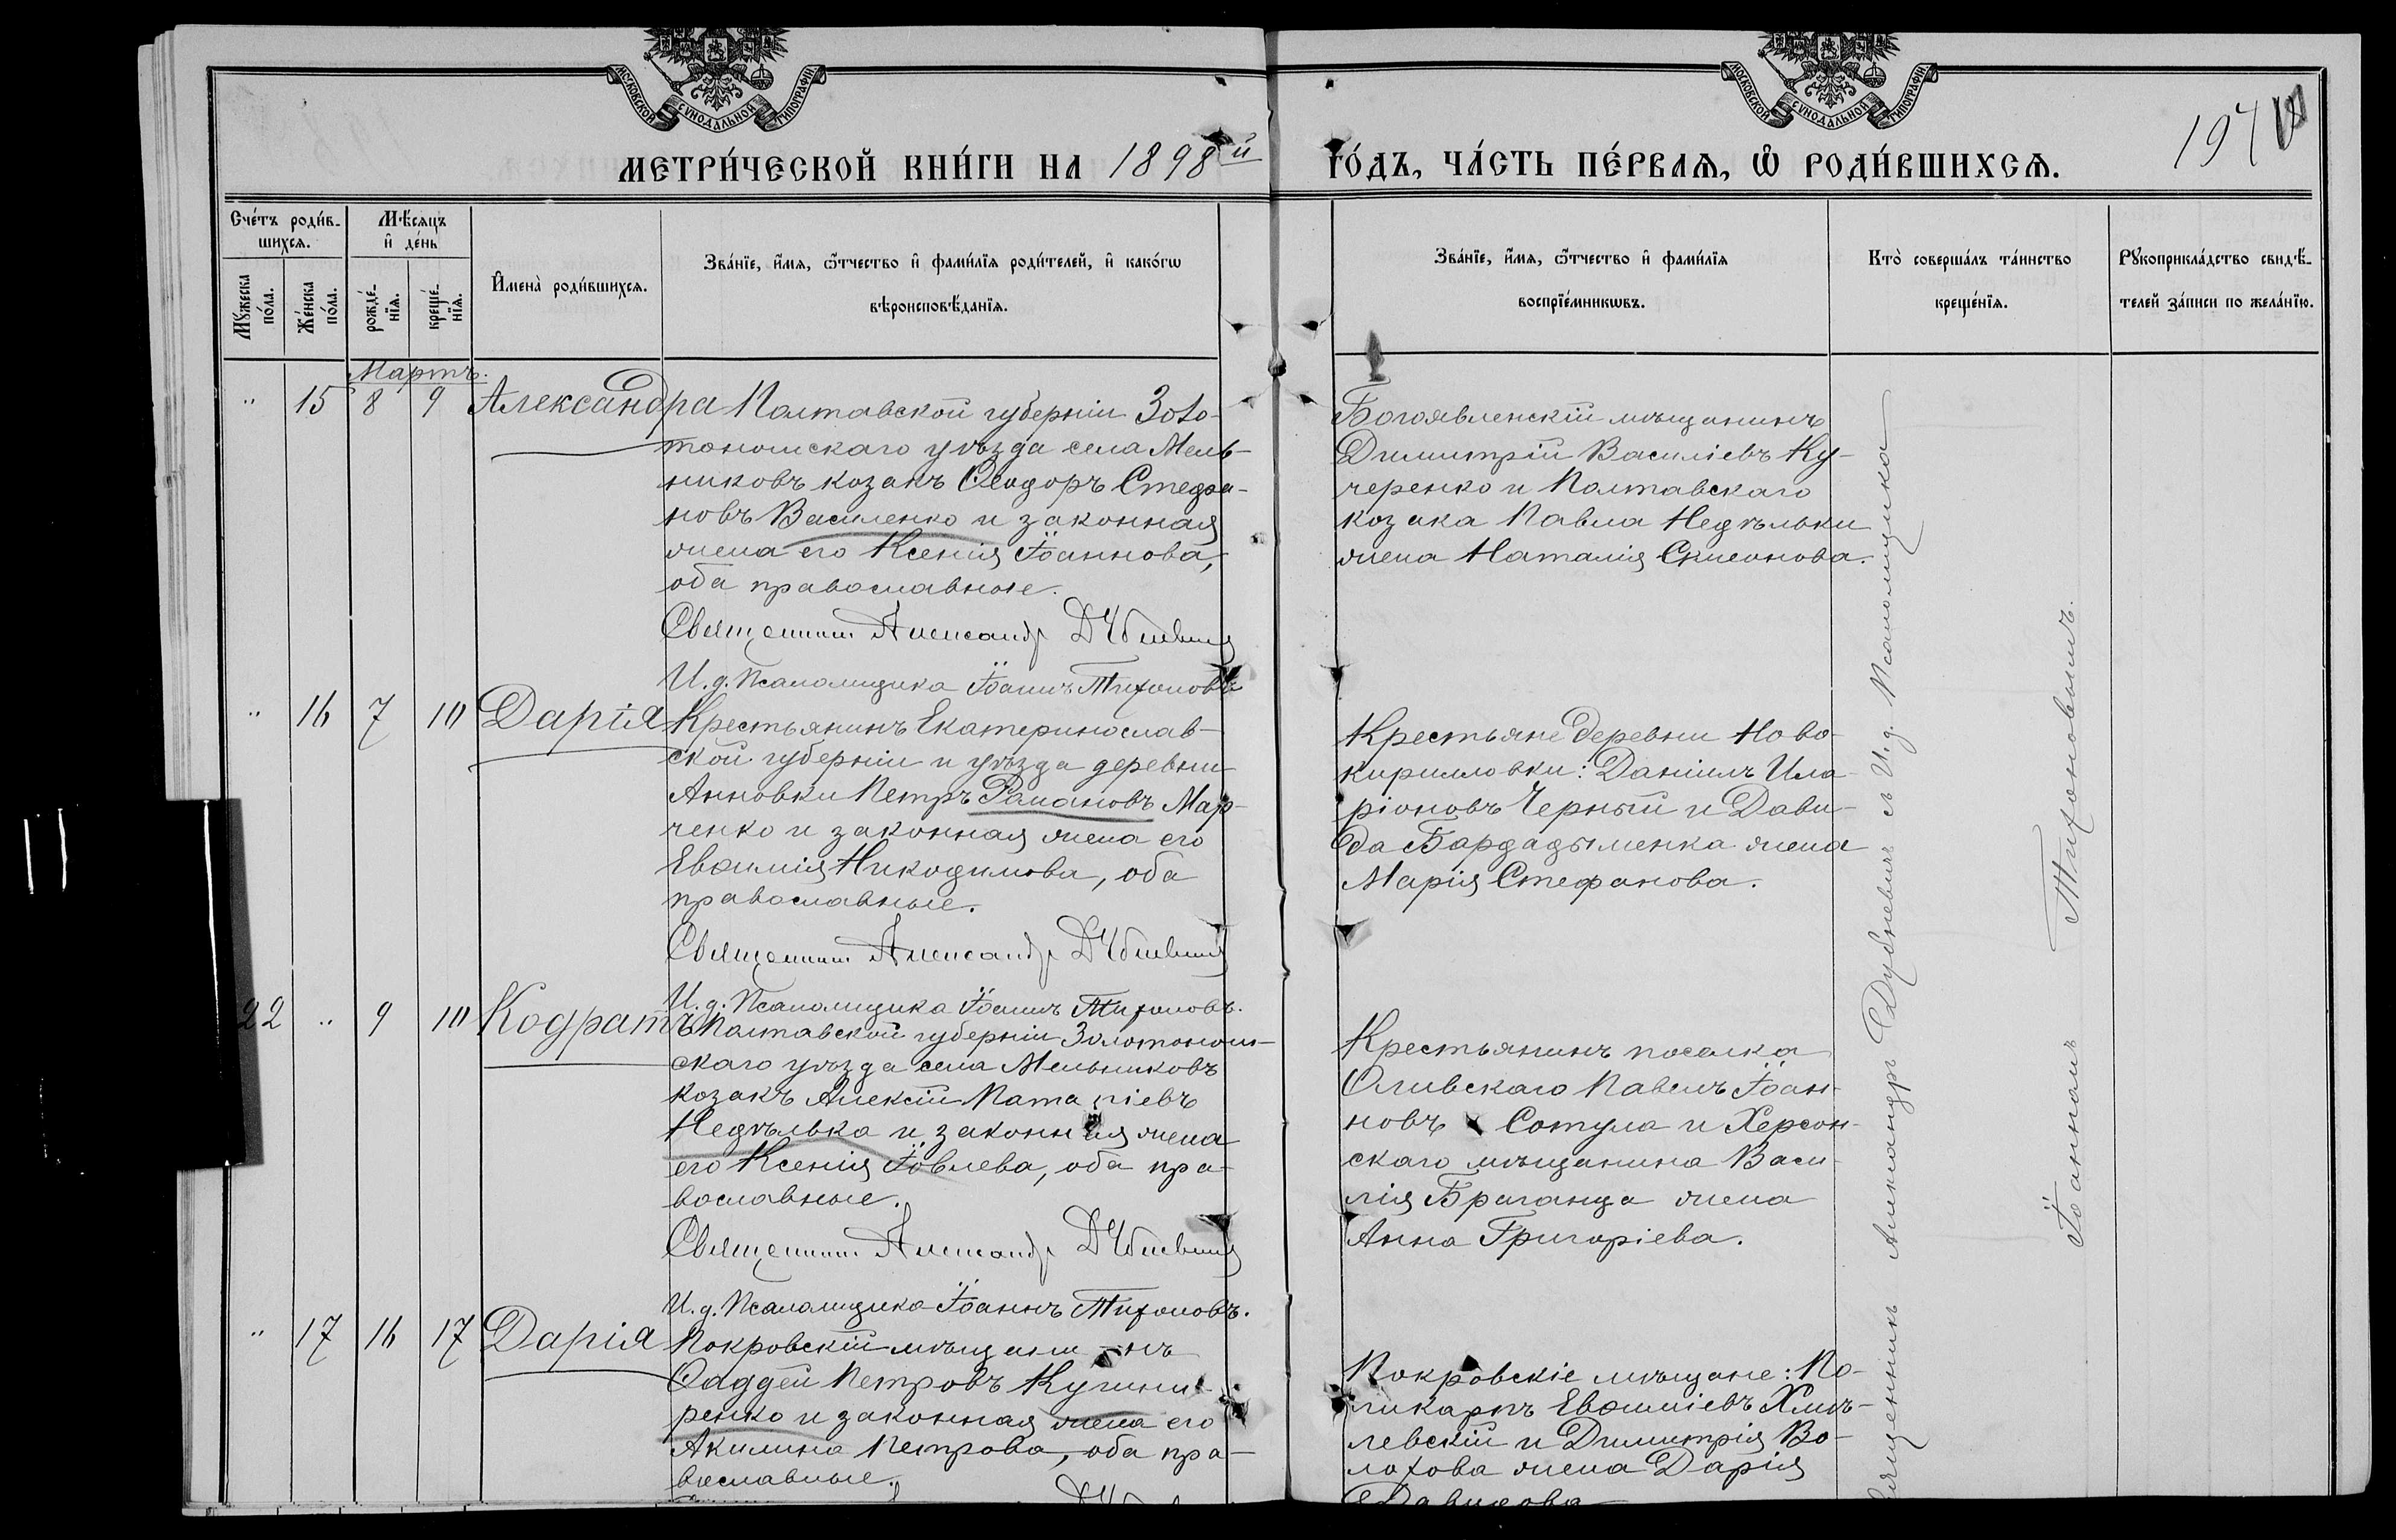 МОСКОВСКОЙ СУНОДАЛЬНОЙ ТИПОГРАФІИ
МОСКОВСКОЙ СУНОДАЛЬНОЙ ТИПОГРАФІИ
МЕТРИ́ЧЕСКОЙ КНИ́ГИ НА 1898й ГО́ДЪ, ЧА́СТЬ ПЕ́РВАѦ, Ѡ҆ РОДИ́ВШИХСѦ.
194
Сче́тъ роди́в-
шихсѧ.
Мꙋ́жеска
по́ла.
Же́нска
по́ла.
Мѣ́сяцъ
и҆ де́нь
рожде́-
нїѧ.
креще́-
нїѧ.
И҆мена̀ роди́вшихсѧ.
Зва́нїе, и҆́мѧ, ѻ҆́тчество и҆ фами́лїѧ роди́телей, и҆ како́гѡ
вѣроисповѣ́данїѧ.
Зва́нїе, и҆́мѧ, ѻ҆́тчество и҆ фами́лїѧ
воспрїе́мникѡвъ.
Кто̀ соверша́лъ та́инство
креще́нїѧ.
Рꙋкоприкла́дство свидѣ́-
телей за́писи по жела́нїю.
Мартъ.
" 15 8 9 Александра
Полтавской губерніи Золо-
тоношскаго уѣзда села Мель-
никовъ козакъ Ѳеодоръ Стефа-
новъ Василенко и законная
жена его Ксенія Іоаннова,
оба православные.
Священникъ Александръ Дубневичъ
И. д. Псаломщика Іоаннъ Тихоновъ
Богоявленскій мѣщанинъ
Димитрій Василіевъ Ку-
черенко и Полтавскаго
козака Павла Недѣльки
жена Наталія Симеонова.
" 16 7 10 Дарія
Крестьянинъ Екатеринослав-
ской губерніи и уѣзда деревни
Анновки Петръ Романовъ Мар-
ченко и законная жена его
Евѳимія Никодимова, оба
православные.
Священникъ Александръ Дубневичъ
И. д. Псаломщика Іоаннъ Тихоновъ.
Крестьяне деревни Ново-
кирилловки: Даніилъ Ила-
ріоновъ Черный и Дави-
да Бардадыменка жена
Марія Стефанова.
22 " 9 10 Кодратъ
Полтавской губерніи Золотонош-
скаго уѣзда села Мельниковъ
козакъ Алексій Пата піевъ
Недѣлька и законная жена
его Ксенія Іовлева, оба пра-
вославные.
Священникъ Александръ Дубневичъ
И. д. Псаломщика Іоаннъ Тихоновъ.
Крестьянинъ поселка
Оливскаго Павелъ Іоан-
новъ Сотула и Херсон-
скаго мѣщанина Васи-
лія Браганца жена
Анна Григоріева.
" 17 16 17 Дарія
Покровскій мѣщани-нъ
Ѳаддей Петровъ Кушни-
ренко и законная жена его
Акилина Петрова, оба пра-
вославные.
Покровскіе мѣщане: По-
ликарпъ Евѳиміевъ Хмѣ-
левскій и Димитрія Во-
лохова жена Дарія
Давидова
Священникъ Александръ Дубневичъ съ И. д. Псаломщика
Іоанномъ Тихоновымъ.